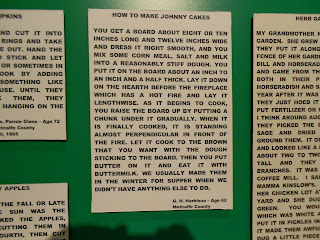 MPKINS
AND CUT IT INTO
RINGS AND TAKE
OUT. HANG THE
STICK AND LET
OR SOMETIMES IN
COOK BY ADDING
SOMETHING LIKE
USE. UNTIL THEY
THEM, THEY
HANGING ON THE
Pernie Glass - Age 72
Metcalfe County
1965
HOW TO MAKE JOHNNY CAKES
YOU GET A BOARD ABOUT EIGHT OR TEN
INCHES LONG AND TWELVE INCHES WIDE
AND DRESS IT RIGHT SMOOTH, AND YOU
MIX SOME CORN MEAL, SALT AND MILK
INTO A REASONABLY STIFF DOUGH. YOU
PUT IT ON THE BOARD ABOUT AN INCH TO
AN INCH AND A HALF THICK. LAY IT DOWN
ON THE HEARTH BEFORE THE FIREPLACE
WHICH HAS A HOT FIRE AND LAY IT
LENGTHWISE. AS IT BEGINS TO COOK,
YOU RAISE THE BOARD UP BY PUTTING A
CHUNK UNDER IT GRADUALLY. WHEN IT
IS FINALLY COOKED, IT IS STANDING
ALMOST PERPENDICULAR IN FRONT OF
THE FIRE. LET IT COOK TO THE BROWN
THAT YOU WANT WITH THE DOUGH
STICKING TO THE BOARD. THEN YOU PUT
BUTTER ON IT AND EAT IT WITH
BUTTERMILK. WE USUALLY MADE THEM
IN THE WINTER FOR SUPPER WHEN WE
DIDN'T HAVE ANYTHING ELSE TO DO.
G. H. Harbison - Age 82
Metcalfe County
Y APPLES
THE FALL OR LATE
SUN WAS THE
THE APPLES,
CUTTING THEM IN
FOURTH, CUT
HERB GA
MY GRANDMOTHER
GARDEN. SHE GREW
THEY PUT IT ALONG
FENCE OF HER GARDE
DILL AND HORSERAD
AND CAME FROM THE
BOTH IN HER
HORSERADISH AND S
YEAR AFTER IT WAS
THEY JUST HOED IT
PUT FERTILIZER OR
THINK AROUND AUG
THEY PICKED THE
SAGE AND DRIED
AROUND THEM. IT G
AND LOOKED LIKE A
ABOUT TWO TO
TALL AND THEY
BRANCHES. IT WAS
COFFEE MILL. I SA
MAMMA KINSLOW'S.
HER CHICKEN LOT A
YARD AND SHE DUG
GREEN. YOU WOUL
WHICH WAS WHITE A
PUT IT IN PICKLES
IT MADE THEM AWFUL